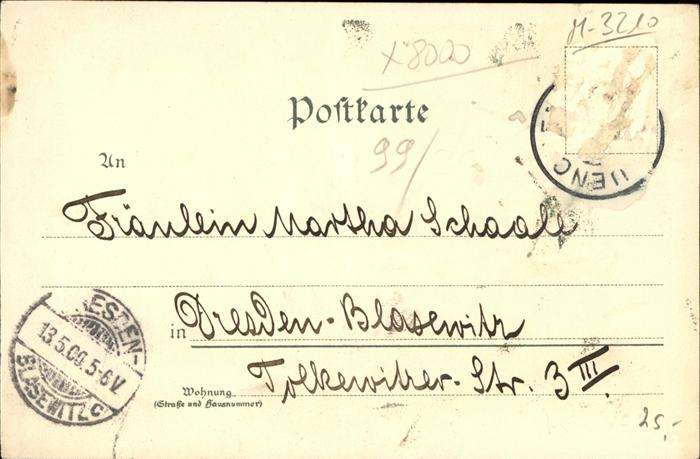 M-3210
x8000
Postkarte
99/
An
Fräulein Martha Schaale
in Dresden-Blasewitz
Tolkewitzer-Str. 3 III.
Wohnung
(Straße und Hausnummer)
DRESDEN-
13.5.00.5-6V.
BLASEWITZ c
25,-